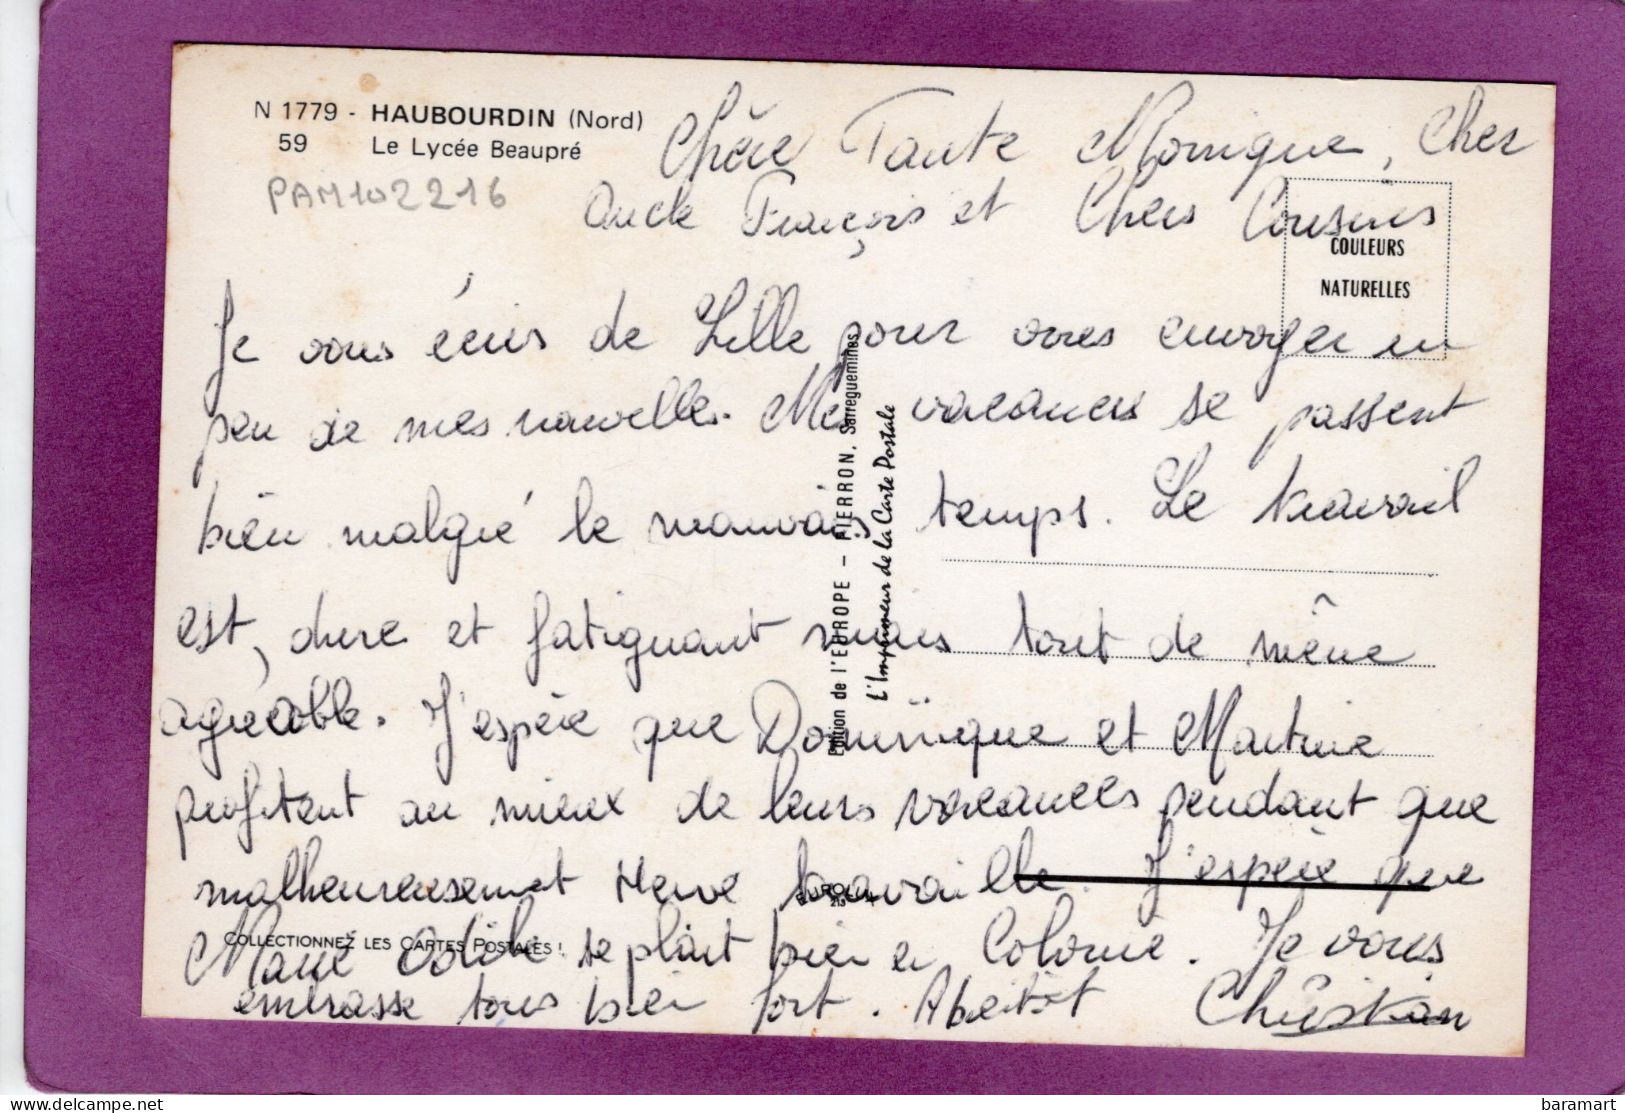 N 1779 - HAUBOURDIN (Nord)
59 Le Lycée Beaupré
PAM102216
Chère Tante Monique, Cher
Oncle François et Chers Cousins
COULEURS
NATURELLES
Je vous écris de Lille pour vous envoyer un
peu de mes nouvelles. Mes vacances se passent
bien malgré le mauvais temps. Le travail
est, dure et fatiguant mais tout de même
agréable. J'espère que Dominique et Martine
profitent au mieux de leurs vacances pendant que
malheureusement Hervé travaille. J'espère que
Marie Odile se plait bien en Colonie. Je vous
embrasse tous bien fort. A bientôt Christian
Edition de l'EUROPE – PIERRON, Sarreguemines
L'Imprimeur de la Carte Postale
COLLECTIONNEZ LES CARTES POSTALES !
baramart